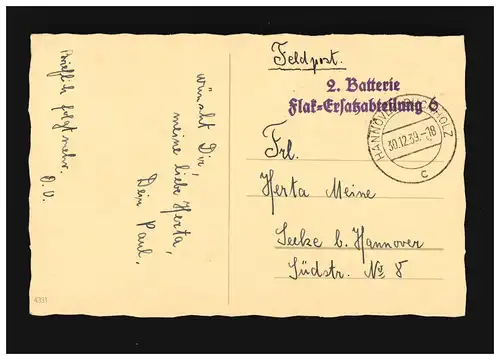 Feldpost.
2. Batterie
Flak-Ersatzabteilung 6
HANNOVER-BUCHHOLZ
30.12.39.-18
c
Frl.
Herta Meine
Seelze b. Hannover
Südstr. No 8
wünscht Dir,
meine liebe Herta,
Dein Paul.
Brieflich folgt mehr.
D. O.
4331